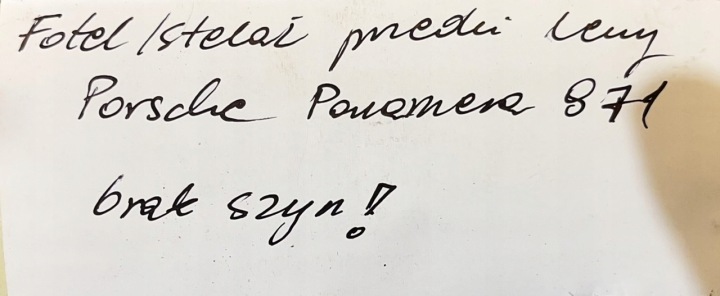 Fotel/stelaż przedni lewy
Porsche Panamera 971
brak szyn!